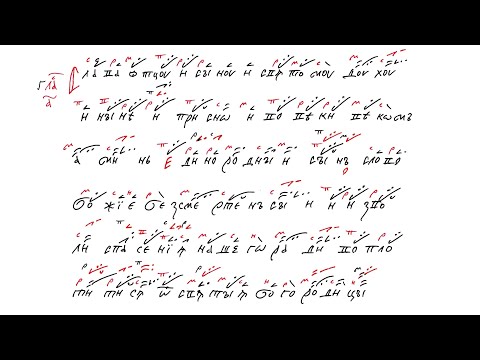 Гла҃ а҃
Сла ва ѻ тцоу и сы ноу и свѧ то моу доу хоу
и ны нѣ и при сно и во вѣ ки вѣ комъ
а ми нь Е ди но ро дны и сы нъ сло во
бо жї е бе зсме рте нъ сы и и и зво
ли спа се нї ѧ на ше го ра ди во пло
ти ти сѧ ѿ свѧ ты ѧ бо го ро ди цы